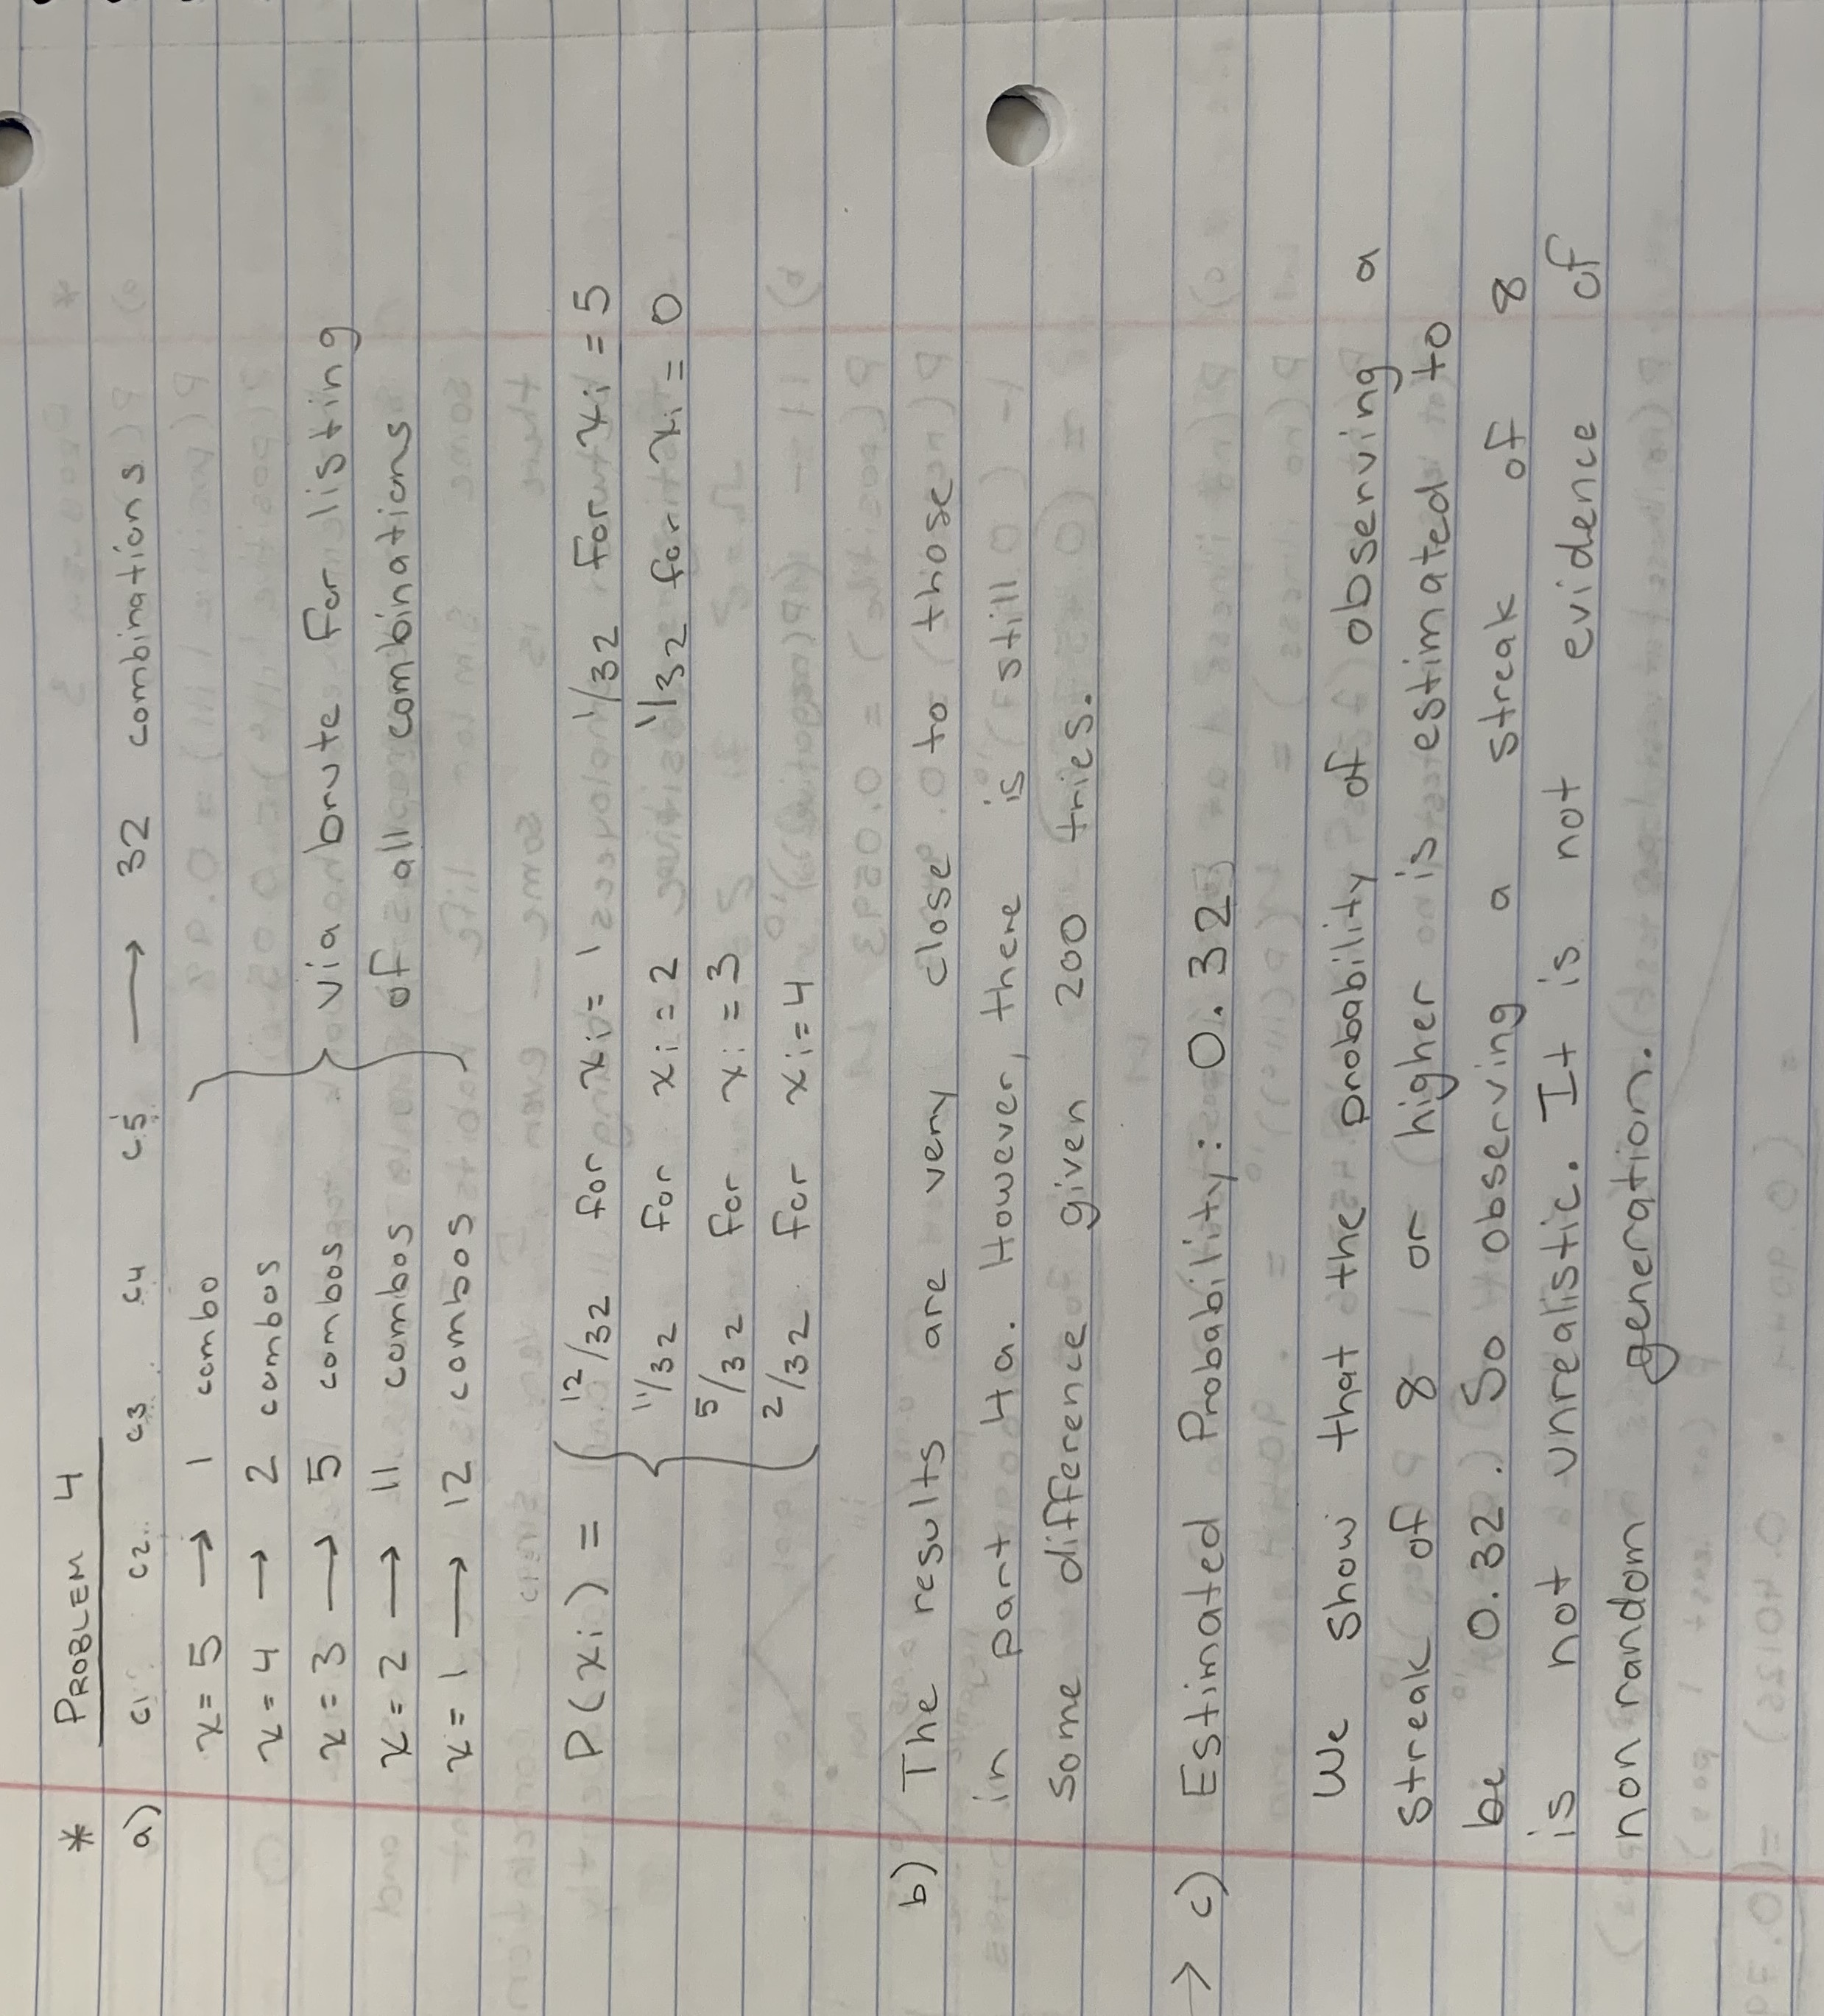 * PROBLEM 4
a) C1 C2 C3 C4 C5 → 32 combinations
x = 5 → 1 combo
x = 4 → 2 combos
x = 3 → 5 combos
via brute for listing
x = 2 → 11 combos
of all combinations
x = 1 → 12 combos
P(xi) = { 12/32 for xi = 1 1/32 for xi = 5
11/32 for xi = 2 1/32 for xi = 0
5/32 for xi = 3
2/32 for xi = 4
b) The results are very close to those
in part 4a. However, there is still
some difference given 200 tries.
→ c) Estimated Probability: 0.32
We show that the probability of observing a
streak of 8 or higher is estimated to
be 0.32. So observing a streak of 8
is not unrealistic. It is not evidence of
non random generation.